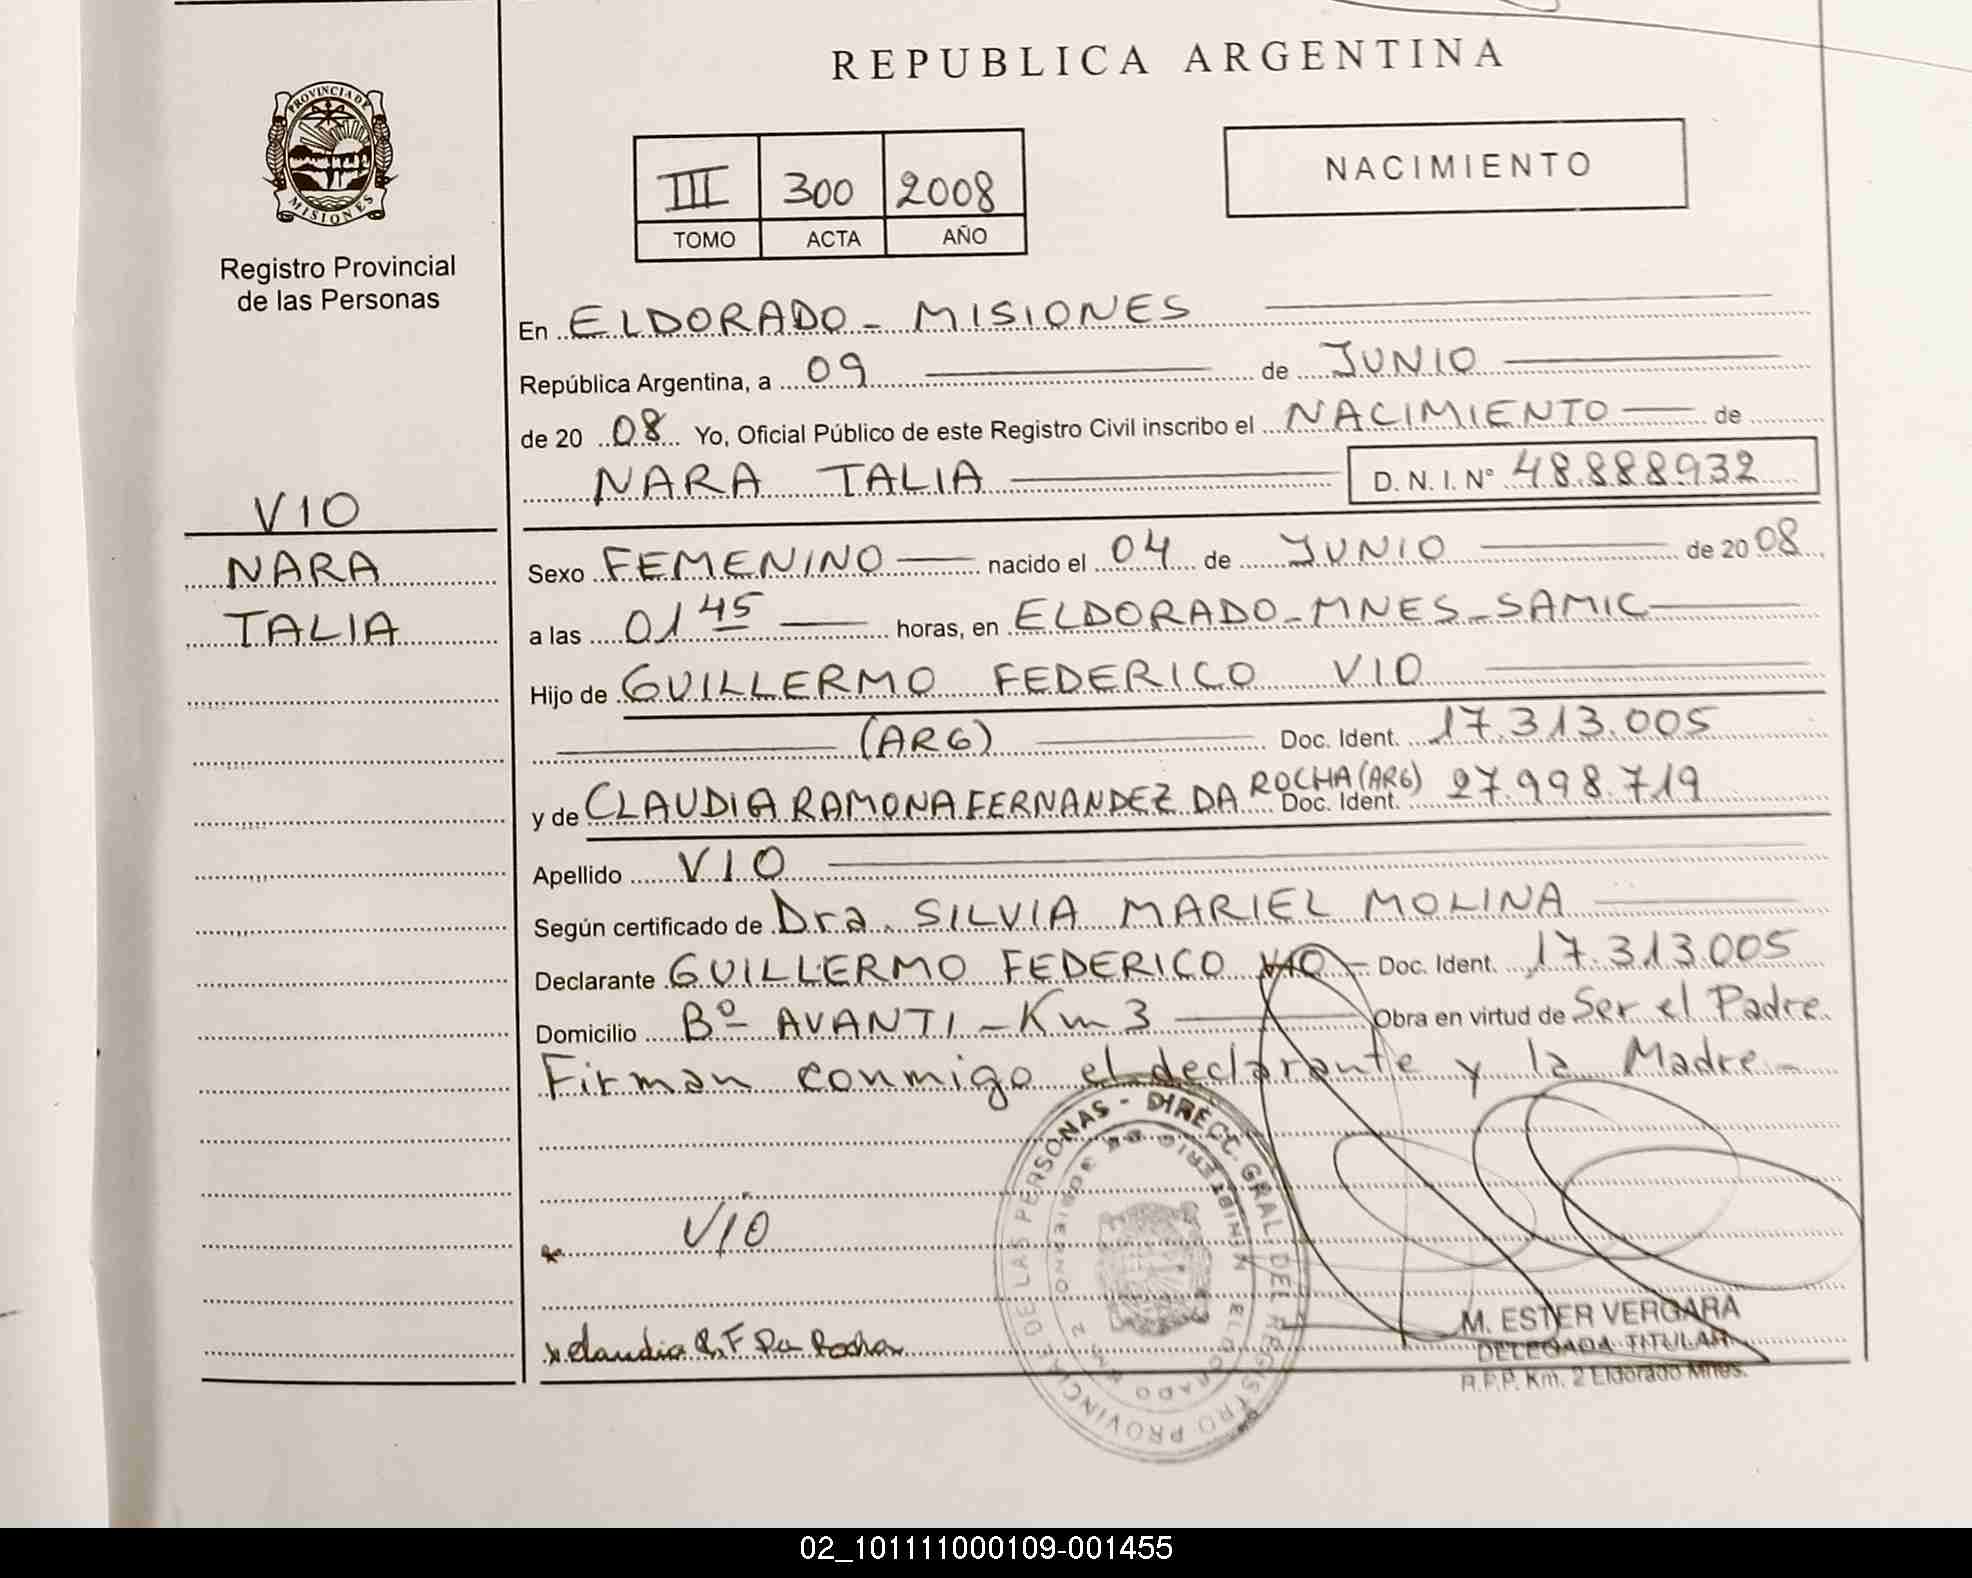 REPUBLICA ARGENTINA
PROVINCIA DE MISIONES
Registro Provincial
de las Personas
III 300 2008
TOMO ACTA AÑO
NACIMIENTO
VIO
NARA
TALIA
En ELDORADO - MISIONES
República Argentina, a 09 de JUNIO
de 20 08 Yo, Oficial Público de este Registro Civil inscribo el NACIMIENTO de
NARA TALIA D. N. I. Nº 48.888.932
Sexo FEMENINO nacido el 04 de JUNIO de 20 08
a las 01 45 horas, en ELDORADO - MNES - SAMIC
Hijo de GUILLERMO FEDERICO VIO
(ARG) Doc. Ident. 17.313.005
y de CLAUDIA RAMONA FERNANDEZ DA ROCHA (ARG) Doc. Ident. 27.998.719
Apellido VIO
Según certificado de Dra. SILVIA MARIEL MOLINA
Declarante GUILLERMO FEDERICO VIO Doc. Ident. 17.313.005
Domicilio Bº AVANTI - Km 3 Obra en virtud de Ser el Padre
Firman conmigo el declarante y la Madre -
VIO
x Claudia R. F Da Rocha
DIRECC. GRAL. DEL REGISTRO PROVINCIAL DE LAS PERSONAS -
MINISTERIO DE GOBIERNO
ELDORADO
M. ESTER VERGARA
DELEGADA TITULAR
R.P.P. Km. 2 Eldorado Mnes.
02_101111000109-001455